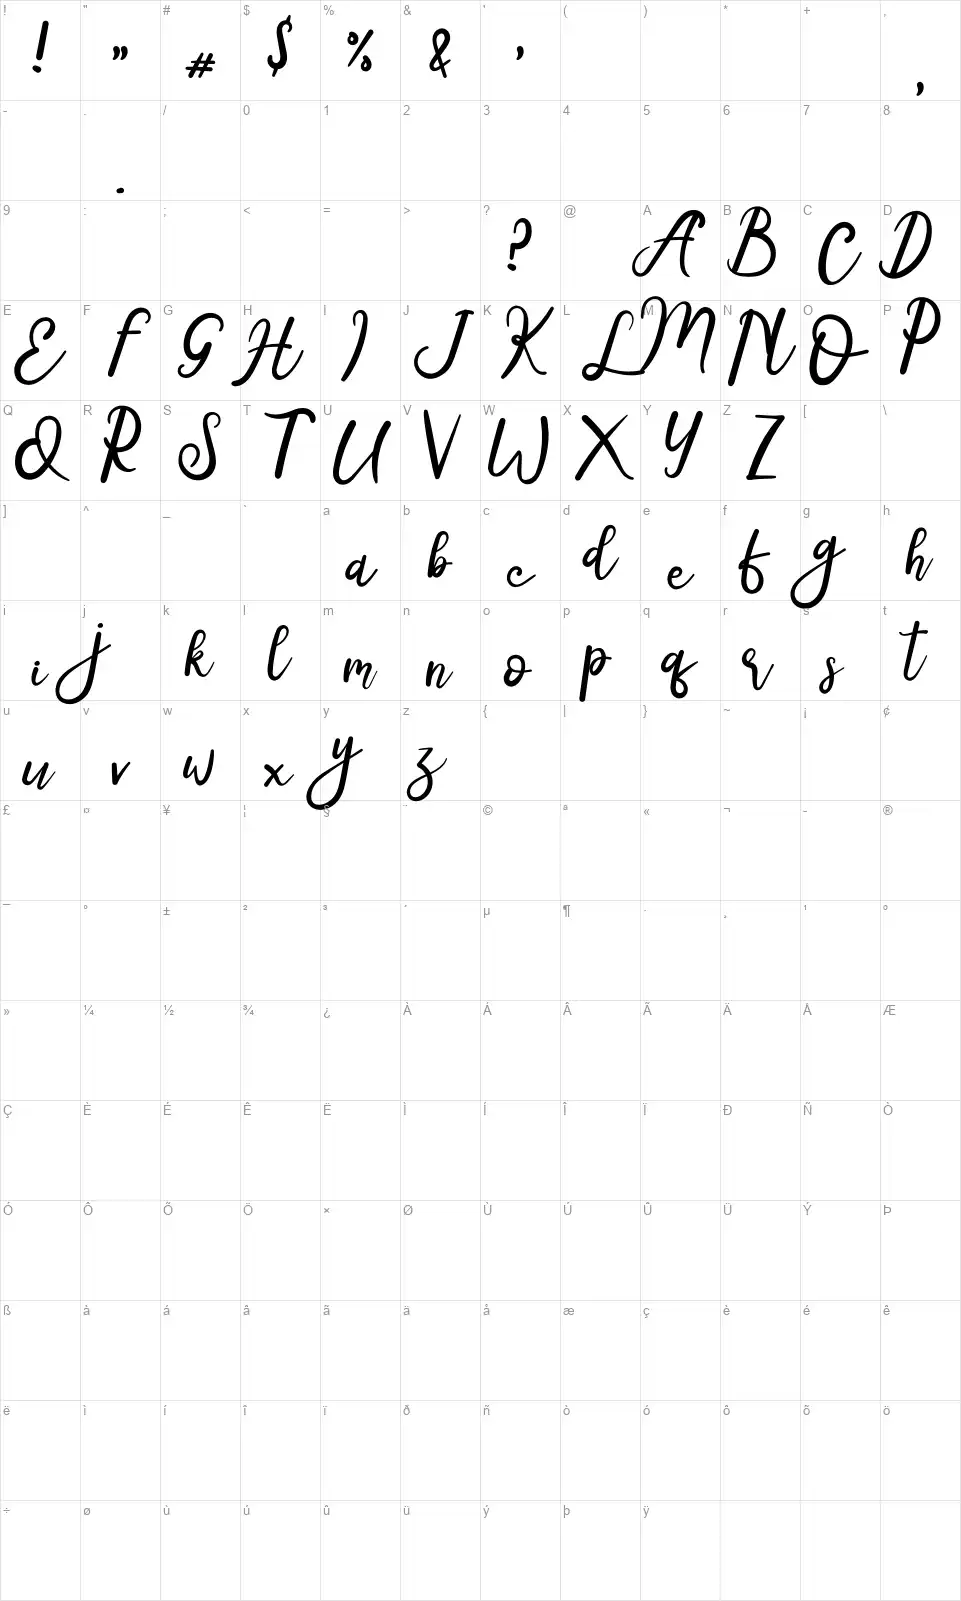 ! " # $ % & ' ( ) * + ,
! " # $ % & ' ,
- . / 0 1 2 3 4 5 6 7 8
.
9 : ; < = > ? @ A B C D
? A B C D
E F G H I J K L M N O P
E F G H I J K L M N O P
Q R S T U V W X Y Z [ \
Q R S T U V W X Y Z
] ^ _ ` a b c d e f g h
a b c d e f g h
i j k l m n o p q r s t
i j k l m n o p q r s t
u v w x y z { | } ~ ¡ ¢
u v w x y z
£ ¤ ¥ ¦ § ¨ © ª « ¬ - ®
¯ ° ± ² ³ ´ µ ¶ · ¸ ¹ º
» ¼ ½ ¾ ¿ À Á Â Ã Ä Å Æ
Ç È É Ê Ë Ì Í Î Ï Ð Ñ Ò
Ó Ô Õ Ö × Ø Ù Ú Û Ü Ý Þ
ß à á â ã ä å æ ç è é ê
ë ì í î ï ð ñ ò ó ô õ ö
÷ ø ù ú û ü ý þ ÿ